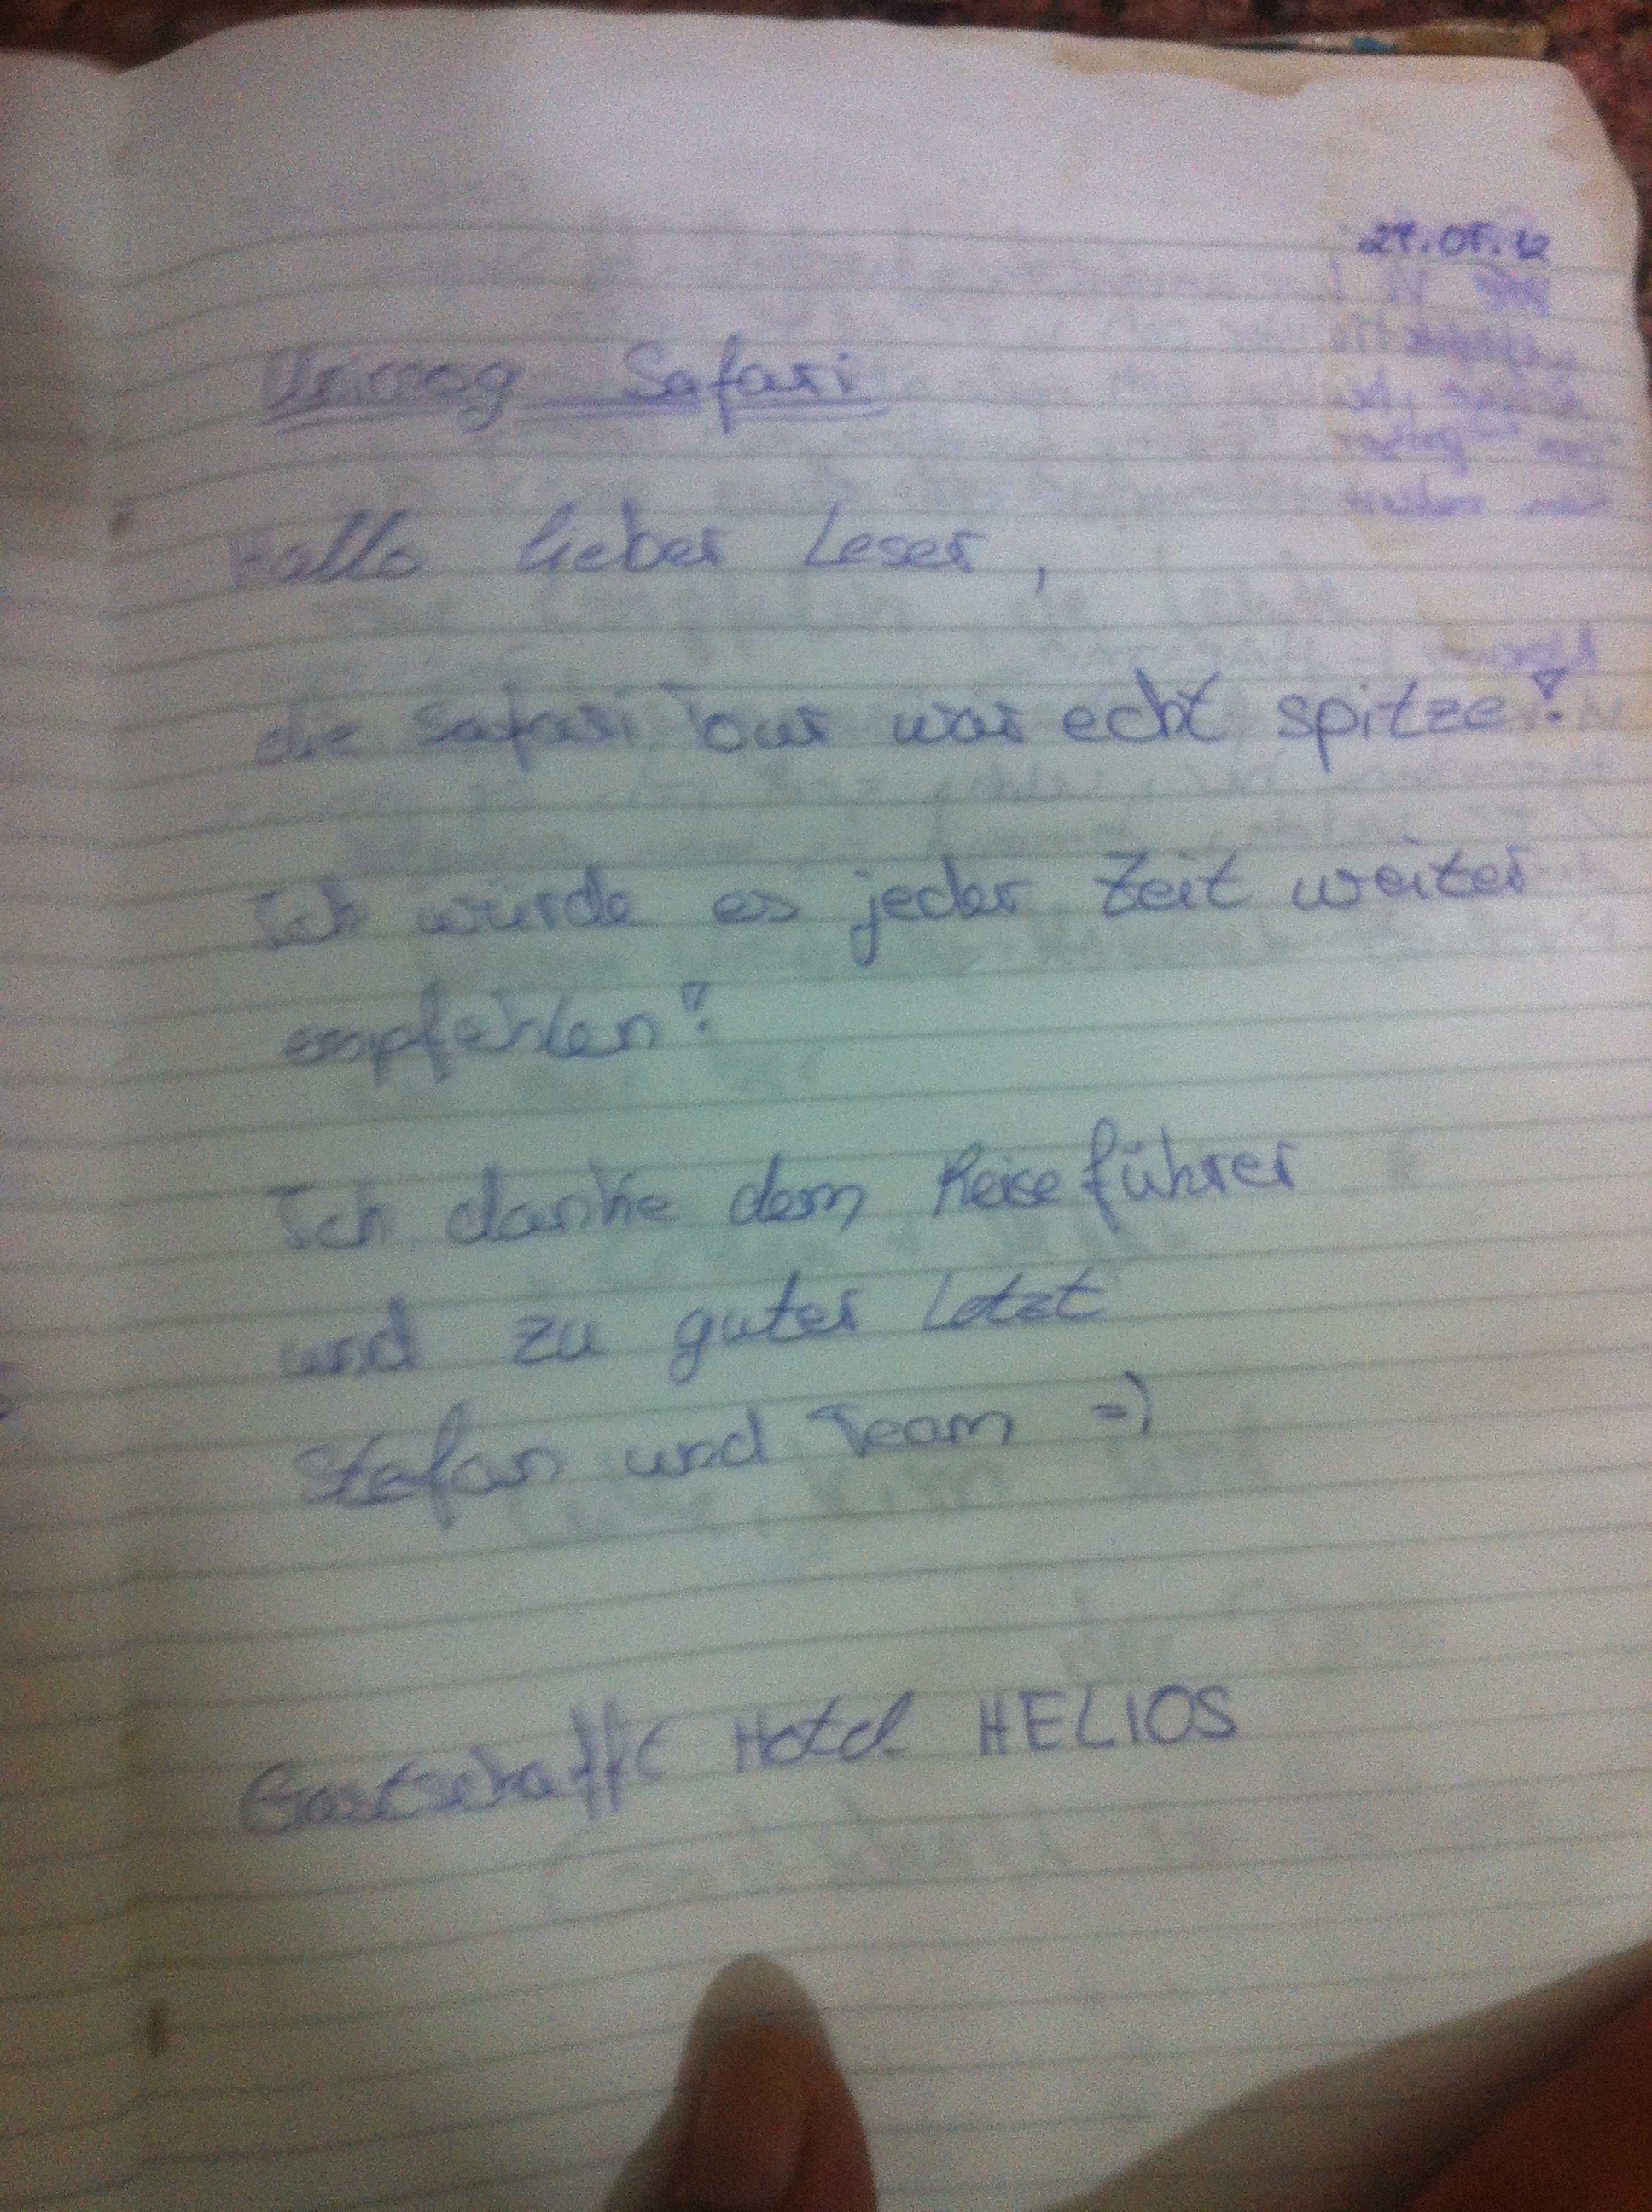 Safari
Hallo lieber Leser,
die Safari Tour war echt spitze!
Ich würde es jeder Zeit weiter
empfehlen!
Ich danke dem Reiseführer
und zu guter Letzt
Stefan und Team =)
Hotel HELIOS